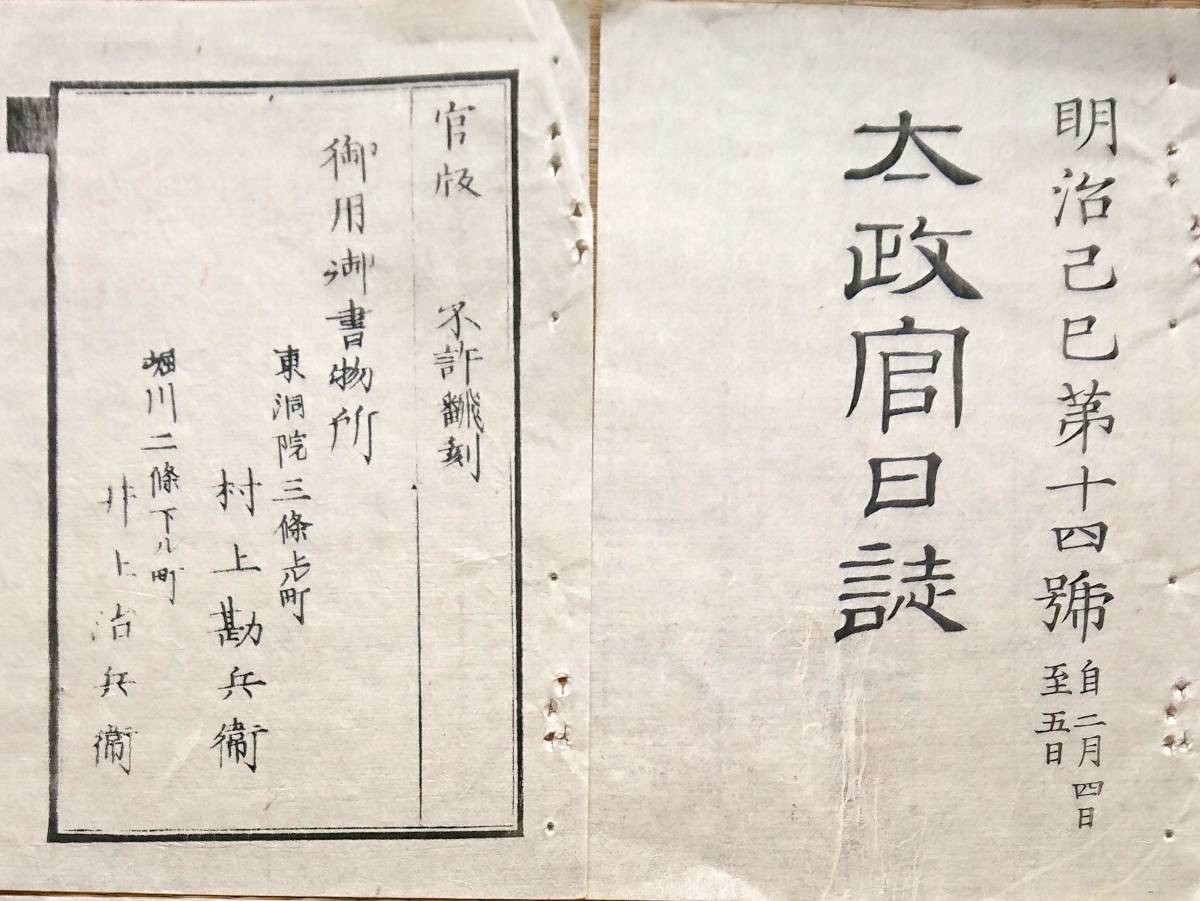 明治己巳第十四號
自二月四日
至五日
太政官日誌
官版 不許翻刻
御用御書物所
東洞院三條上ル町
村上勘兵衛
堀川二條下ル町
井上治兵衛